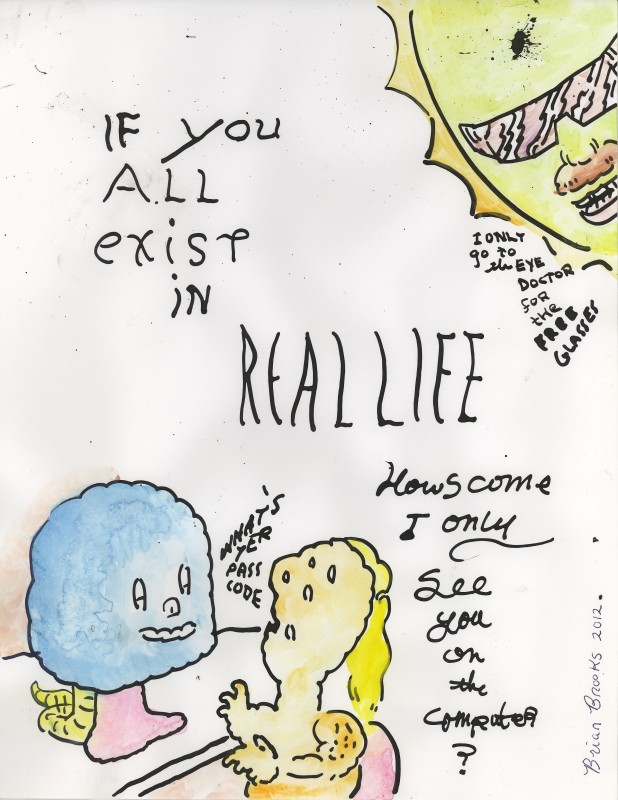 IF you
ALL
exist
iN
REAL LIFE
I ONLY
go to
the EYE
DOCTOR
FOR
the
FREE
GLASSES
WHAT'S
YER
PASS
CODE
Howscome
I only
See
you
on
the
computer
?
Brian Brooks 2012.